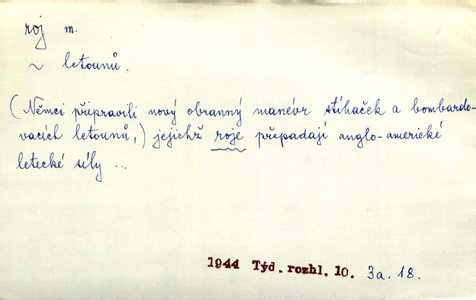 roj m.
~ letounů.
(Němci připravili nový obranný manévr stíhaček a bombardo-
vacích letounů,) jejichž roje přepadají anglo-americké
letecké síly ...
1944 Týd. rozhl. 10. 3a. 18.